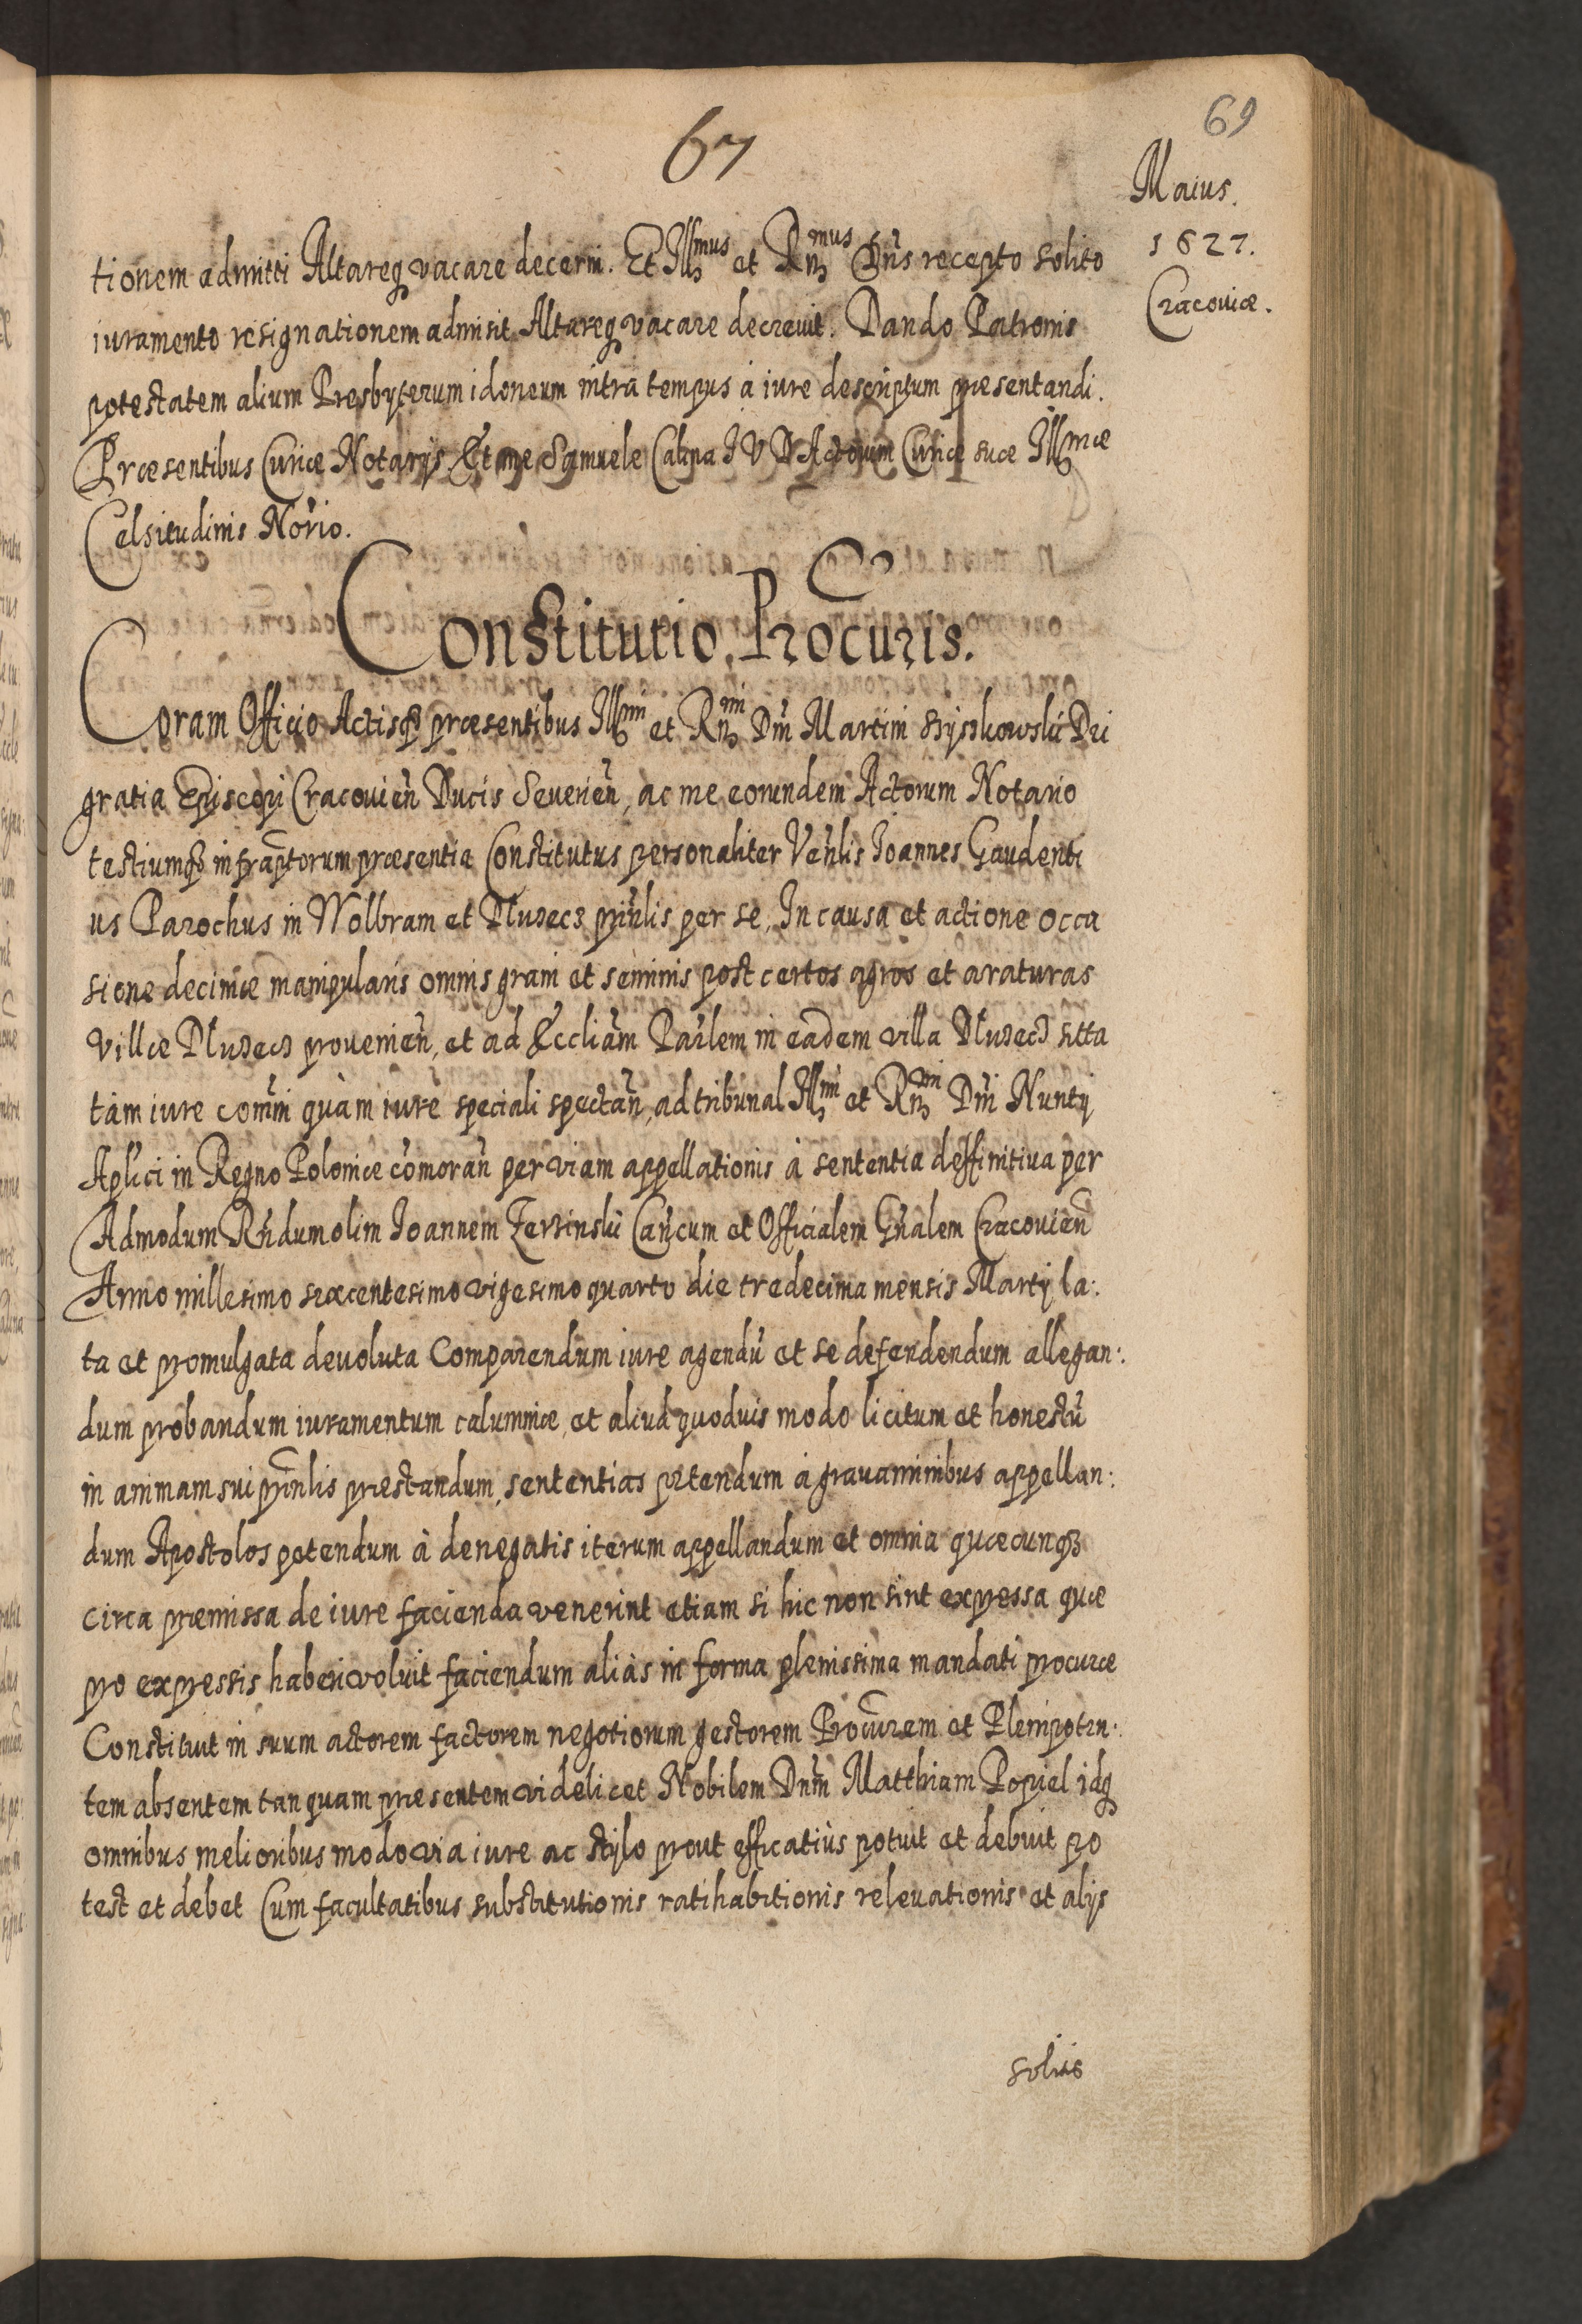 67
69
Maius.
1627.
Cracoviæ.
tionem admitti Altareq vacare decerni. Et Illmus et Rmus Dns recepto solito
iuramento resignationem admisit Altareq vacare decrevit. Dando Patronis
potestatem alium Presbyterum idoneum intra tempus à iure descriptum præsentandi.
Præsentibus Curiæ Notarijs Et me Samuele Calina I V D Actorum Curiæ suæ Illmæ
Celsitudinis Norio.
Constitutio Procuris.
Coram Officio Actisq præsentibus Illmi et Rmi Dni Martini Szyszkowski Dei
gratia Episcopi Cracovien Ducis Severien, ac me eorundem Actorum Notario
testiumq infraptorum præsentia Constitutus personaliter Venlis Ioannes Gaudenti
us Parochus in Wolbram et Dłużecz prinlis per se, In causa et actione occa
sione decimæ manipularis omnis grani et seminis post certos agros et araturas
villæ Dłużecz provenien, et ad Eccliam Parlem in eadem villa Dłużecz sitta
tàm iure comni quàm iure speciali spectan, ad tribunal Illmi et Rmi Dni Nuntij
Aplici in Regno Poloniæ comoran per viam appellationis à sententia deffinitiva per
Admodum Rndum olim Ioannem Zerzinski Cancum et Officialem Gnalem Cracovien
Anno millesimo sexcentesimo vigesimo quarto die tredecima mensis Martij la:
ta et promulgata devoluta Comparendum iure agendu et se defendendum allegan:
dum probandum iuramentum calumniæ, et aliud quoduis modo licitum et honestu
in animam sui prinlis præstandum, sententias petendum à gravaminibus appellan:
dum Apostolos petendum à denegatis iterum appellandum et omnia quæcunq
circa præmissa de iure facienda venerint etiam si hic non sint expressa quæ
pro expressis haberi voluit faciendum aliàs in forma plenissima mandati procuræ
Constituit in suum actorem factorem negotiorum gestorem Procurem et Plenipoten:
tem absentem tanquam præsentem videlicet Nobilem Dnum Matthiam Popiel idq
omnibus melioribus modo via iure ac stylo prout efficatiùs potuit et debuit po
test et debet Cum facultatibus substitutionis ratihabitionis relevationis et alijs
solitis